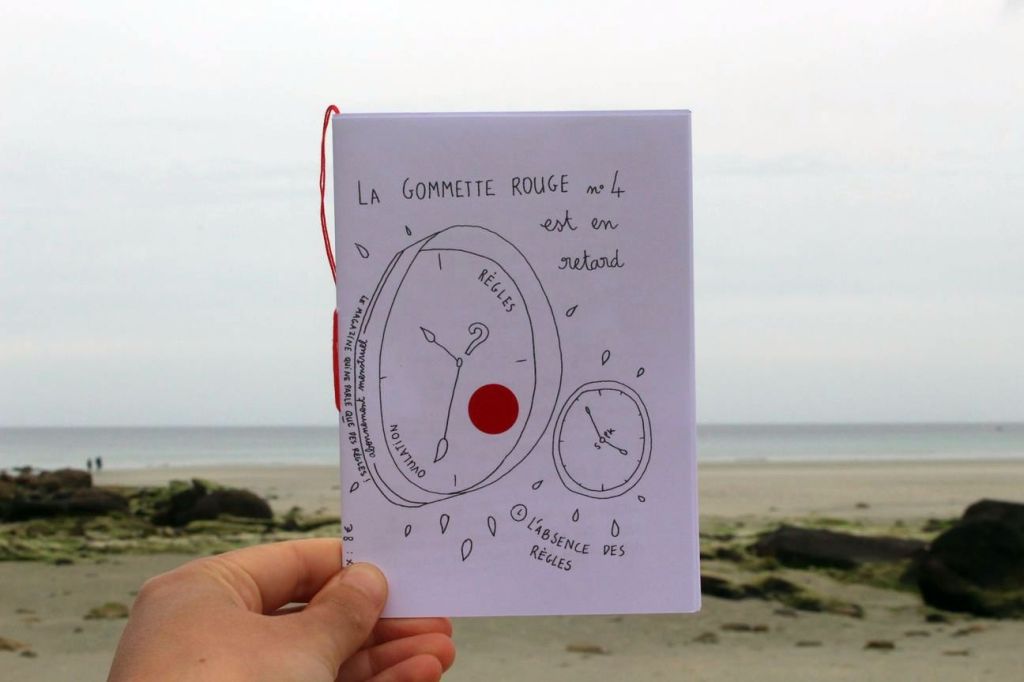 LA GOMMETTE ROUGE n° 4
est en
retard
RÈGLES
?
OVULATION
LE MAGAZINE QUI NE PARLE QUE DES RÈGLES !
abonnement menstruel
SOPK
L'ABSENCE DES
RÈGLES